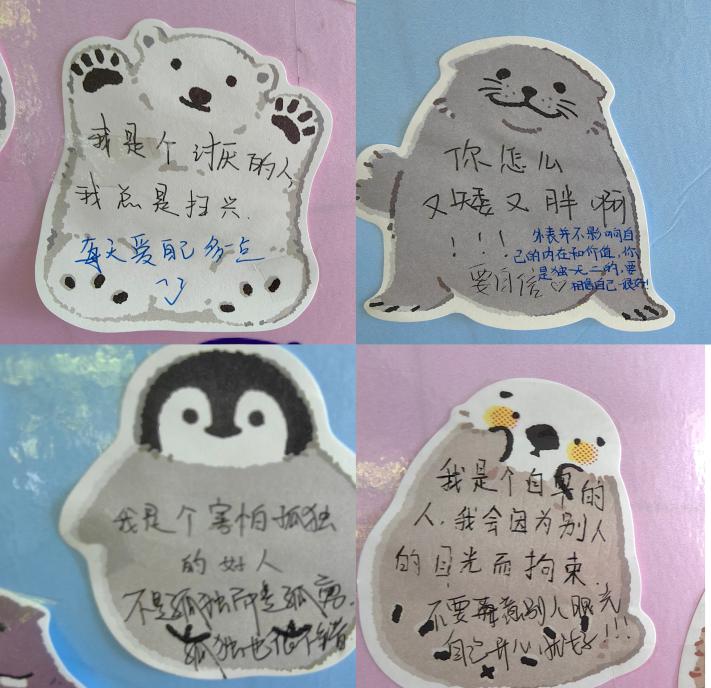 我是个讨厌的人,
我总是扫兴.
每天爱自己多一点
你怎么
又矮又胖啊
!!!
外表并不影响自
己的内在和价值,你
是独一无二的,要
相信自己一很好!
要自信♡
我是个害怕孤独
的好人
不是孤独而是孤寓.
孤独也很不错
我是个自卑的
人.我会因为别人
的目光而拘束.
不要再意别人眼光
自己开心就好!!!